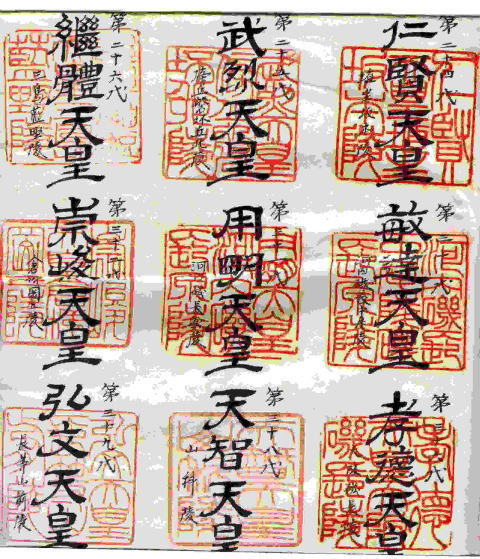 第二十四代
仁賢天皇
埴生坂本陵
第二十五代
武烈天皇
傍丘磐坏丘北陵
第二十六代
繼體天皇
三島藍野陵
第三十代
敏達天皇
河内磯長中尾陵
第三十一代
用明天皇
河内磯長原陵
第三十二代
崇峻天皇
倉梯岡陵
第三十六代
孝德天皇
大阪磯長陵
第三十八代
天智天皇
山科陵
第三十九代
弘文天皇
長等山前陵